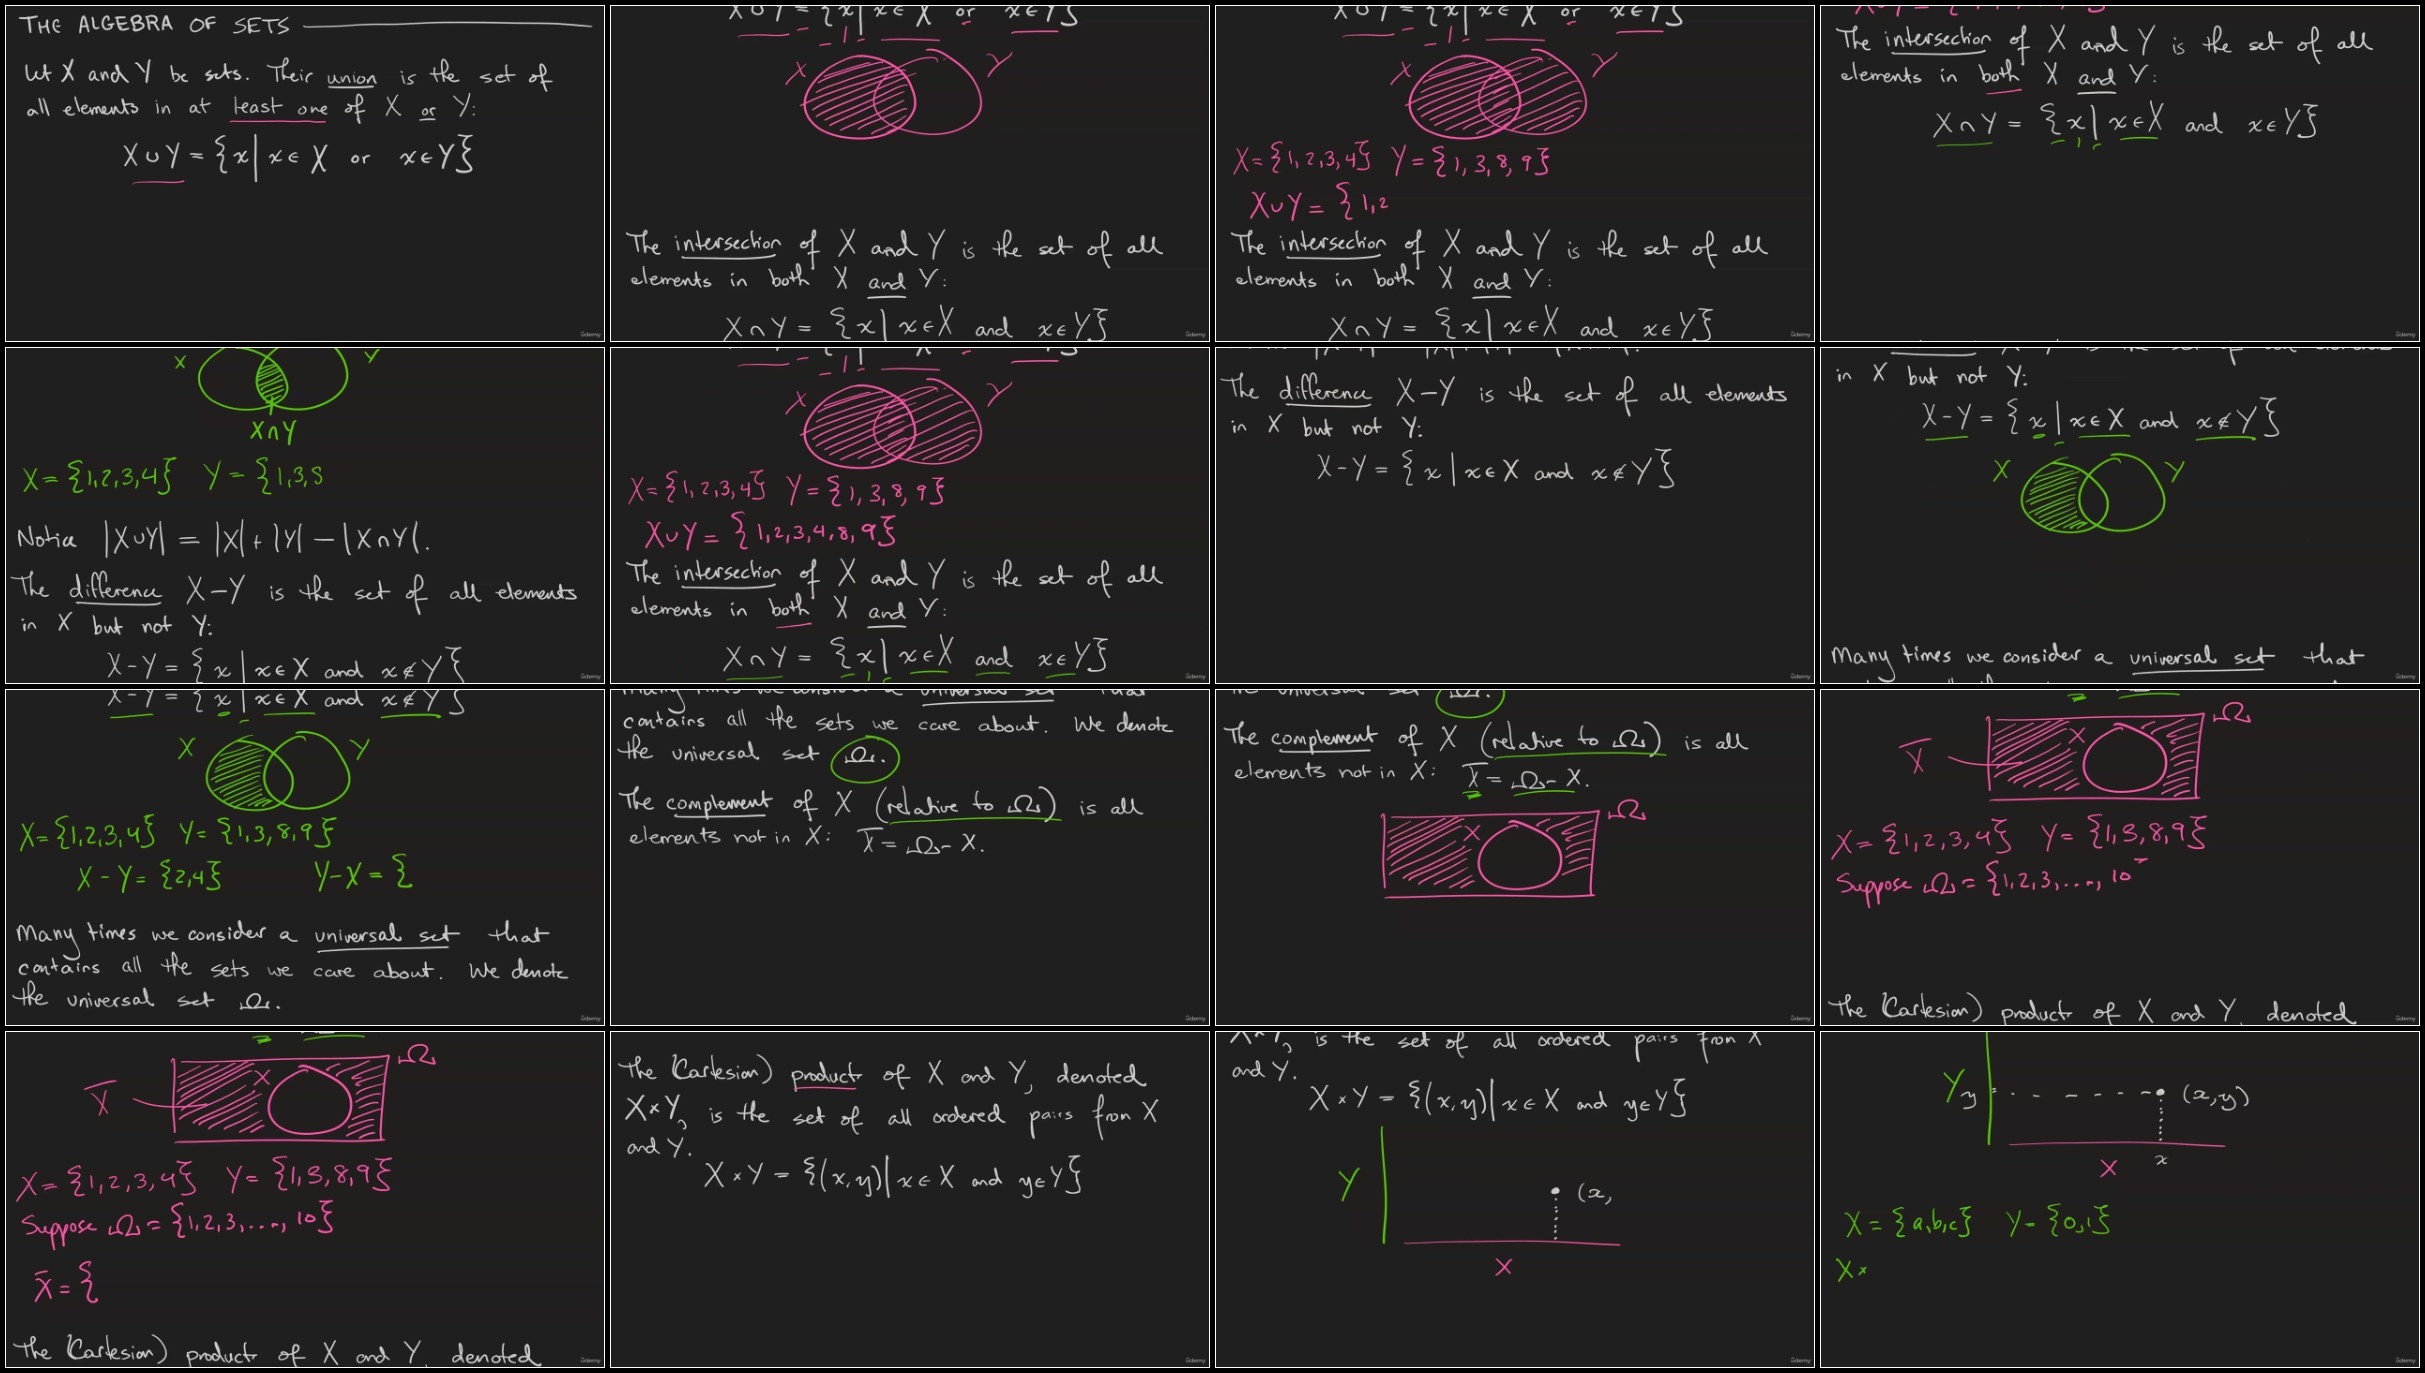 THE ALGEBRA OF SETS
Let X and Y be sets. Their union is the set of
all elements in at least one of X or Y:
X∪Y = {x | x∈X or x∈Y}
X∪Y = {x | x∈X or x∈Y}
X Y
The intersection of X and Y is the set of all
elements in both X and Y:
X∩Y = {x | x∈X and x∈Y}
X∪Y = {x | x∈X or x∈Y}
X Y
X = {1,2,3,4} Y = {1,3,8,9}
X∪Y = {1,2
The intersection of X and Y is the set of all
elements in both X and Y:
X∩Y = {x | x∈X and x∈Y}
The intersection of X and Y is the set of all
elements in both X and Y:
X∩Y = {x | x∈X and x∈Y}
X Y
X∩Y
X = {1,2,3,4} Y = {1,3,8
Notice |X∪Y| = |X|+|Y|-|X∩Y|.
The difference X-Y is the set of all elements
in X but not Y:
X-Y = {x | x∈X and x∉Y}
X Y
X = {1,2,3,4} Y = {1,3,8,9}
X∪Y = {1,2,3,4,8,9}
The intersection of X and Y is the set of all
elements in both X and Y:
X∩Y = {x | x∈X and x∈Y}
The difference X-Y is the set of all elements
in X but not Y:
X-Y = {x | x∈X and x∉Y}
in X but not Y:
X-Y = {x | x∈X and x∉Y}
X Y
Many times we consider a universal set that
X-Y = {x | x∈X and x∉Y}
X Y
X = {1,2,3,4} Y = {1,3,8,9}
X-Y = {2,4} Y-X = {
Many times we consider a universal set that
contains all the sets we care about. We denote
the universal set Ω.
Many times we consider a universal set that
contains all the sets we care about. We denote
the universal set Ω.
The complement of X (relative to Ω) is all
elements not in X: X̅ = Ω - X.
the universal set Ω.
The complement of X (relative to Ω) is all
elements not in X: X̅ = Ω - X.
X Ω
X̅ X Ω
X = {1,2,3,4} Y = {1,3,8,9}
Suppose Ω = {1,2,3,...,10
The (Cartesian) product of X and Y, denoted
X̅ X Ω
X = {1,2,3,4} Y = {1,3,8,9}
Suppose Ω = {1,2,3,...,10}
X̅ = {
The (Cartesian) product of X and Y, denoted
The (Cartesian) product of X and Y, denoted
X×Y, is the set of all ordered pairs from X
and Y.
X×Y = {(x,y) | x∈X and y∈Y}
X×Y, is the set of all ordered pairs from X
and Y.
X×Y = {(x,y) | x∈X and y∈Y}
Y (x,
X
Y y (x,y)
X x
X = {a,b,c} Y = {0,1}
X×